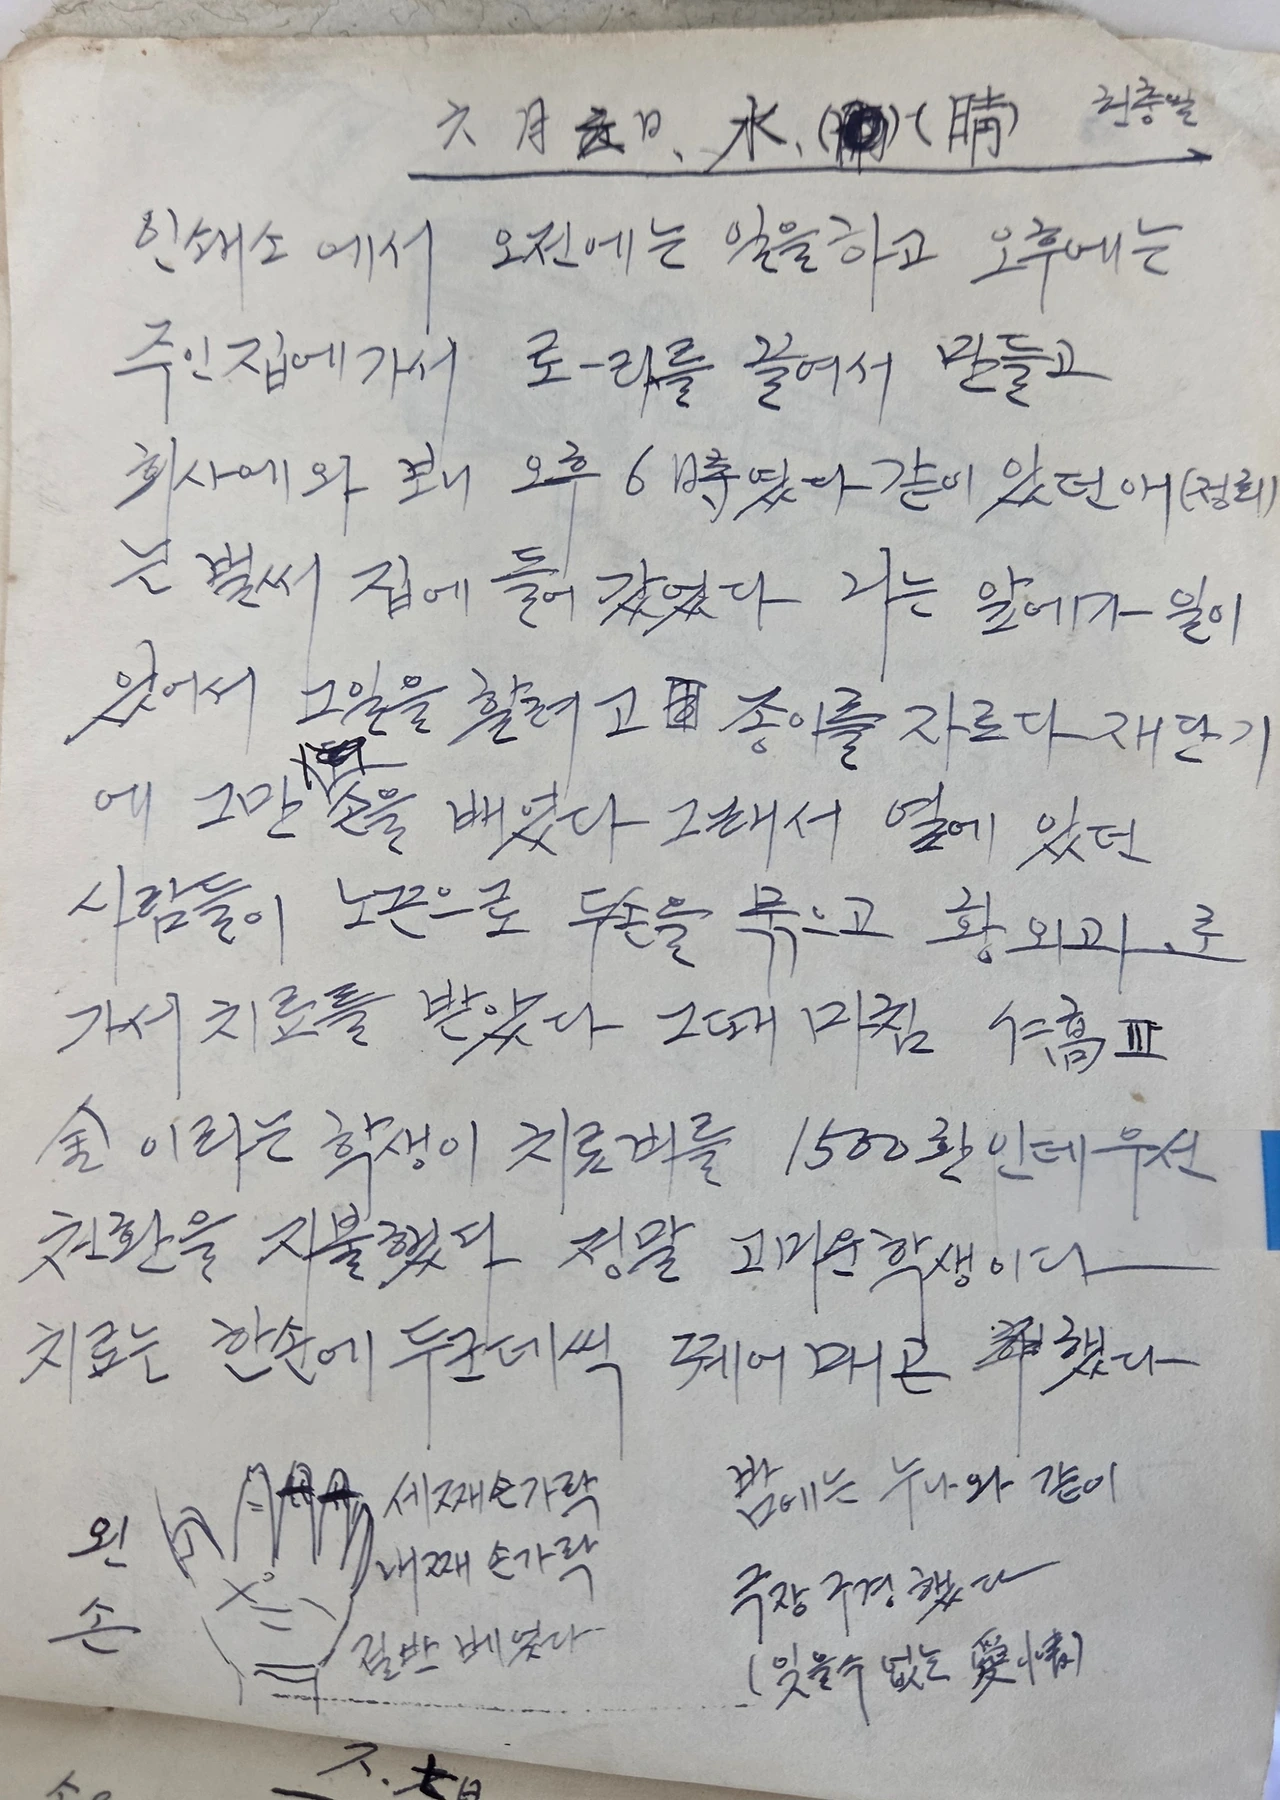 六月六日、水、(晴) 현충일
인쇄소에서 오전에는 일을하고 오후에는
주인집에가서 로-라를 끌여서 만들고
회사에와 보니 오후 6時였다 같이 있던애(정희)
는 벌써 집에 들어 갔었다 나는 앞에가 일이
있어서 그일을 할려고 종이를 자르다 재단기
에 그만 손을 배었다 그래서 옆에 있던
사람들이 노끈으로 두손을 묶으고 황외과로
가서 치료를 받았다 그때 마침 仁高Ⅲ
金 이라는 학생이 치료비를 1500환인데 우선
천환을 지불했다 정말 고마운학생이다
치료는 한손에 두군데씩 꿰어 매고 했다
왼손
세째손가락
네째 손가락
절반 베였다
밤에는 누나와 같이
극장구경 했다
(잊을수 없는 愛情)
六.七日